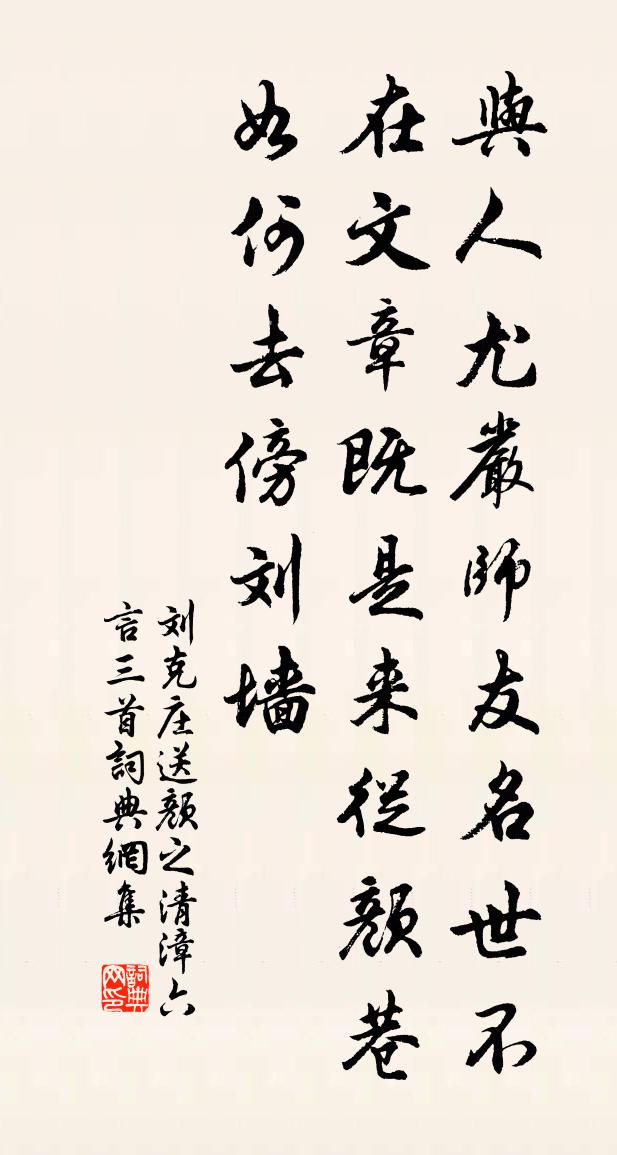 與人尤嚴師友名世不
在文章既是来從顏巷
如何去傍刘墙
刘克庄送顏之清漳六
言三首詞典網集
詞典
网印